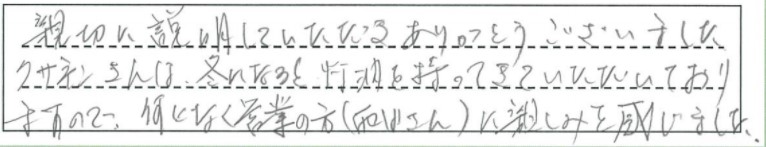 親切に説明していただきありがとうございました
クサネンさんは、冬になると灯油を持ってきていただいており
ますので、何となく営業の方(西山さん)に親しみを感じました。